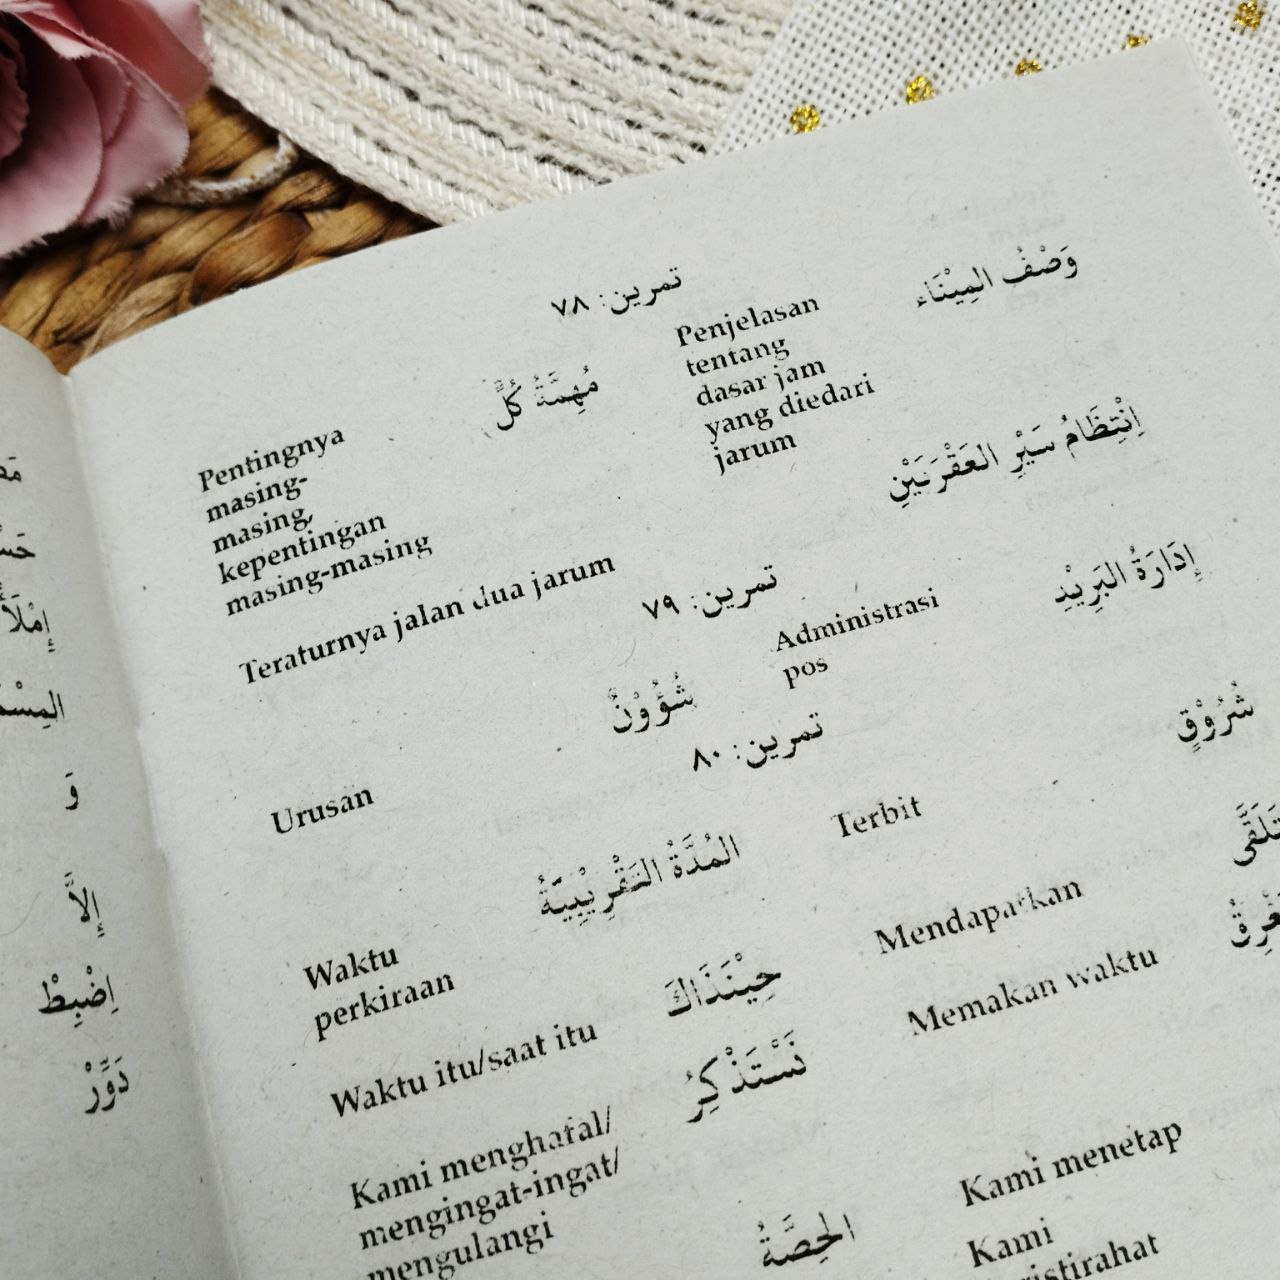 تمرين: ٧٨
وَصْفُ المِيْنَاء
Penjelasan
tentang
dasar jam
yang diedari
jarum
مُهِمَّةُ كُلٍّ
Pentingnya
masing-
masing,
kepentingan
masing-masing
اِنْتِظَامُ سَيْرِ العَقْرَبَيْنِ
Teraturnya jalan dua jarum
تمرين: ٧٩
إِدَارَةُ البَرِيْدِ
Administrasi
pos
شُؤُوْنٌ
Urusan
تمرين: ٨٠
شُرُوْقٍ
Terbit
المُدَّةُ التَقْرِيْبِيَّةُ
Waktu
perkiraan
تَلَقَّى
Mendapatkan
حِيْنَذَاكَ
Waktu itu/saat itu
Memakan waktu
نَسْتَذْكِرُ
Kami menghafal/
mengingat-ingat/
mengulangi
Kami menetap
الحِصَّةُ
Kami
إِلاَّ
اِضْبِطْ
دَوِّرْ
وَ